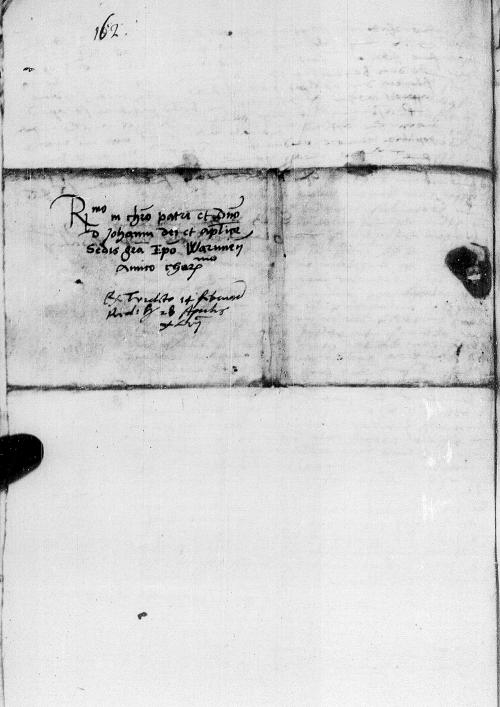 162.
R mo in chro patri et dno
D Johanni dei et aplice
Sedis gra Epo Warmień
Amico char mo
Ex Tridento 14
28 Aprilis